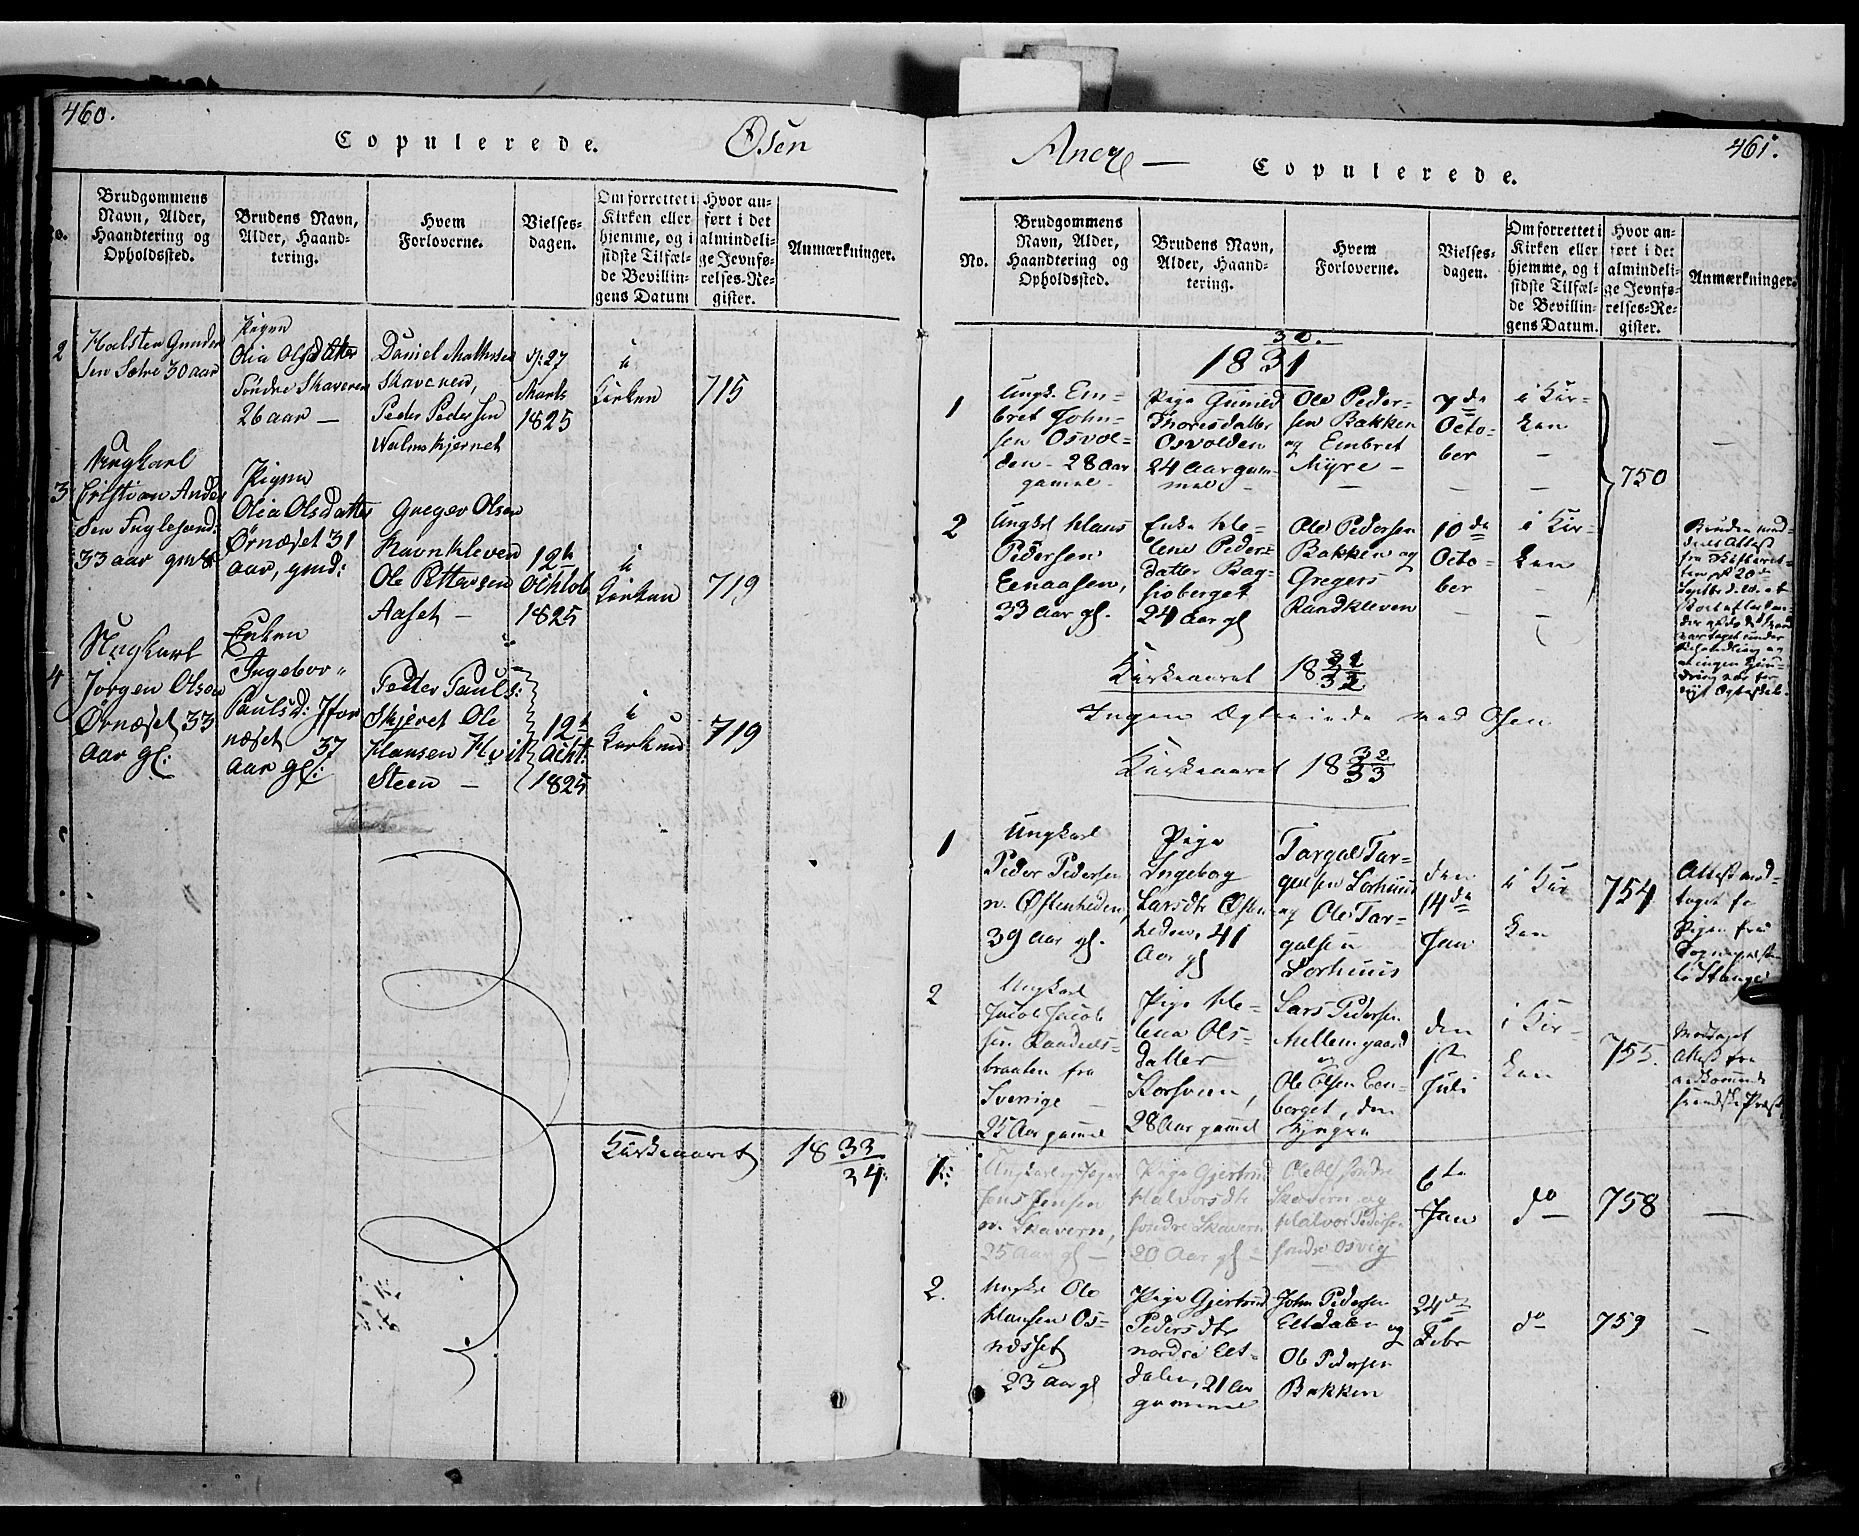 460.
Copulerede.
Osen
No.
Brudgommens
Navn, Alder,
Haandtering og
Opholdssted.
Brudens Navn,
Alder, Haand-
tering.
Hvem
Forloverne.
Vielses-
dagen.
Om forrettet i
Kirken eller
hjemme, og i
sidste Tilfæl-
de Bevillin-
gens Datum
Hvor an-
ført i det
almindeli-
ge Jevnfø-
relses-Re-
gister.
Anmærkninger.
2
Halsten Gunder
sen Sætre 30 aar
Pigen
Olia Olsdatter
Søndre Skaveren
26 aar —
Daniel Mathesen
Skaveren,
Peder Pedersen
Wulmskjernet
27
Marts
1825
i
Kirken
715
3
Ungkarl
Cristian Ander
sen Fuglesand:
33 aar gml
Pigen
Olia Olsdatter
Ørnæset 31
aar, gml:
Greger Olsen
Ravnkleven
Ole Pettersen
Aaset —
12te
Ochtob
1825
i
Kirken
719
4
Ungkarl
Jörgen Olsen
Ørnæset 33
aar gl:
Enken
Ingebor
Paulsd:
næset 37
aar gl:
Peder Pauls:
Skjeret Ole
Hansen Hvit
Steen —
12te
Ocht:
1825
i
Kirken
719
Kirkeaaret 18 33/34.
461.
Anex —
Copulerede.
No.
Brudgommens
Navn, Alder,
Haandtering og
Opholdssted.
Brudens Navn,
Alder, Haand-
tering.
Hvem
Forloverne.
Vielses-
dagen.
Om forrettet i
Kirken eller
hjemme, og i
sidste Tilfæl-
de Bevillin-
gens Datum.
Hvor an-
ført i det
almindeli-
ge Jevnfø-
relses-Re-
gister.
Anmærkninger.
30.
1831
1
Ungk. Em-
bret John-
sen Osvol-
den — 28 aar
gamal —
Pige Gunild
Thoresdatter
Osvolden
24 aar gam-
mel —
Ole Peder-
sen Bakken
og Embret
Myre —
7de
Octo-
ber
i Kir-
ken
750
2
Ungkl Hans
Pedersen
Eenaasen,
33 aar gl.
Enke He-
lene Peders
datter Bag-
sjøberget
24 aar gl
Ole Pedersen
Bakken og
Gregers
Randkleven
10de
Octo-
ber
i Kir-
ken
Kirkeaaret 18 31/32
Ingen Ægteviede ved Osen
Kirkeaaret 18 32/33
1
Ungkarl
Peder Pedersen
n. Østenheden,
39 aar gl.
Pige
Ingebog
Larsdtr Østen-
heden, 41
Aar gl
Targal Tar-
galsen Sorhuus
og Ole Tar-
galsen
Sorhuus
den
14de
Jan
i Kir
ken
754
Attest mod-
taget fo
Pigen fra
Sognepræsten
til Stange
2
Ungkarl
Jacob Jacob
sen
braaten fra
Sverige —
25 Aar gammel
Pige He-
lena Ols-
datter
Storsveen,
28 Aar gammel
Lars Pedersen
Mellemgaard
og
Ole Olsen Een-
berget, den
yngre
den
1ste
Juli
i Kir-
ken
755.
Modtaget
Attest fra
vedkommende
svenske Præst
1.
Ungkarl
Jens Jensen
n. Skavern,
25 Aar gl —
Pige Gjertrud
Halvorsdtr
søndre Skavern
20 Aar gl —
søndre
Skavern og
Halvor Pedersen
søndre Osvig
6te
Jan
do
758
—
2.
Ungkl Ole
Hansen Os-
næsset
23 aar gl
Pige Gjertrud
Pedersdtr
nordre Elt-
dalen, 21 aar
gammel
John Pedersen
Eltdalen og
Ole Pedersen
Bakken
24de
Febr
do
759
—